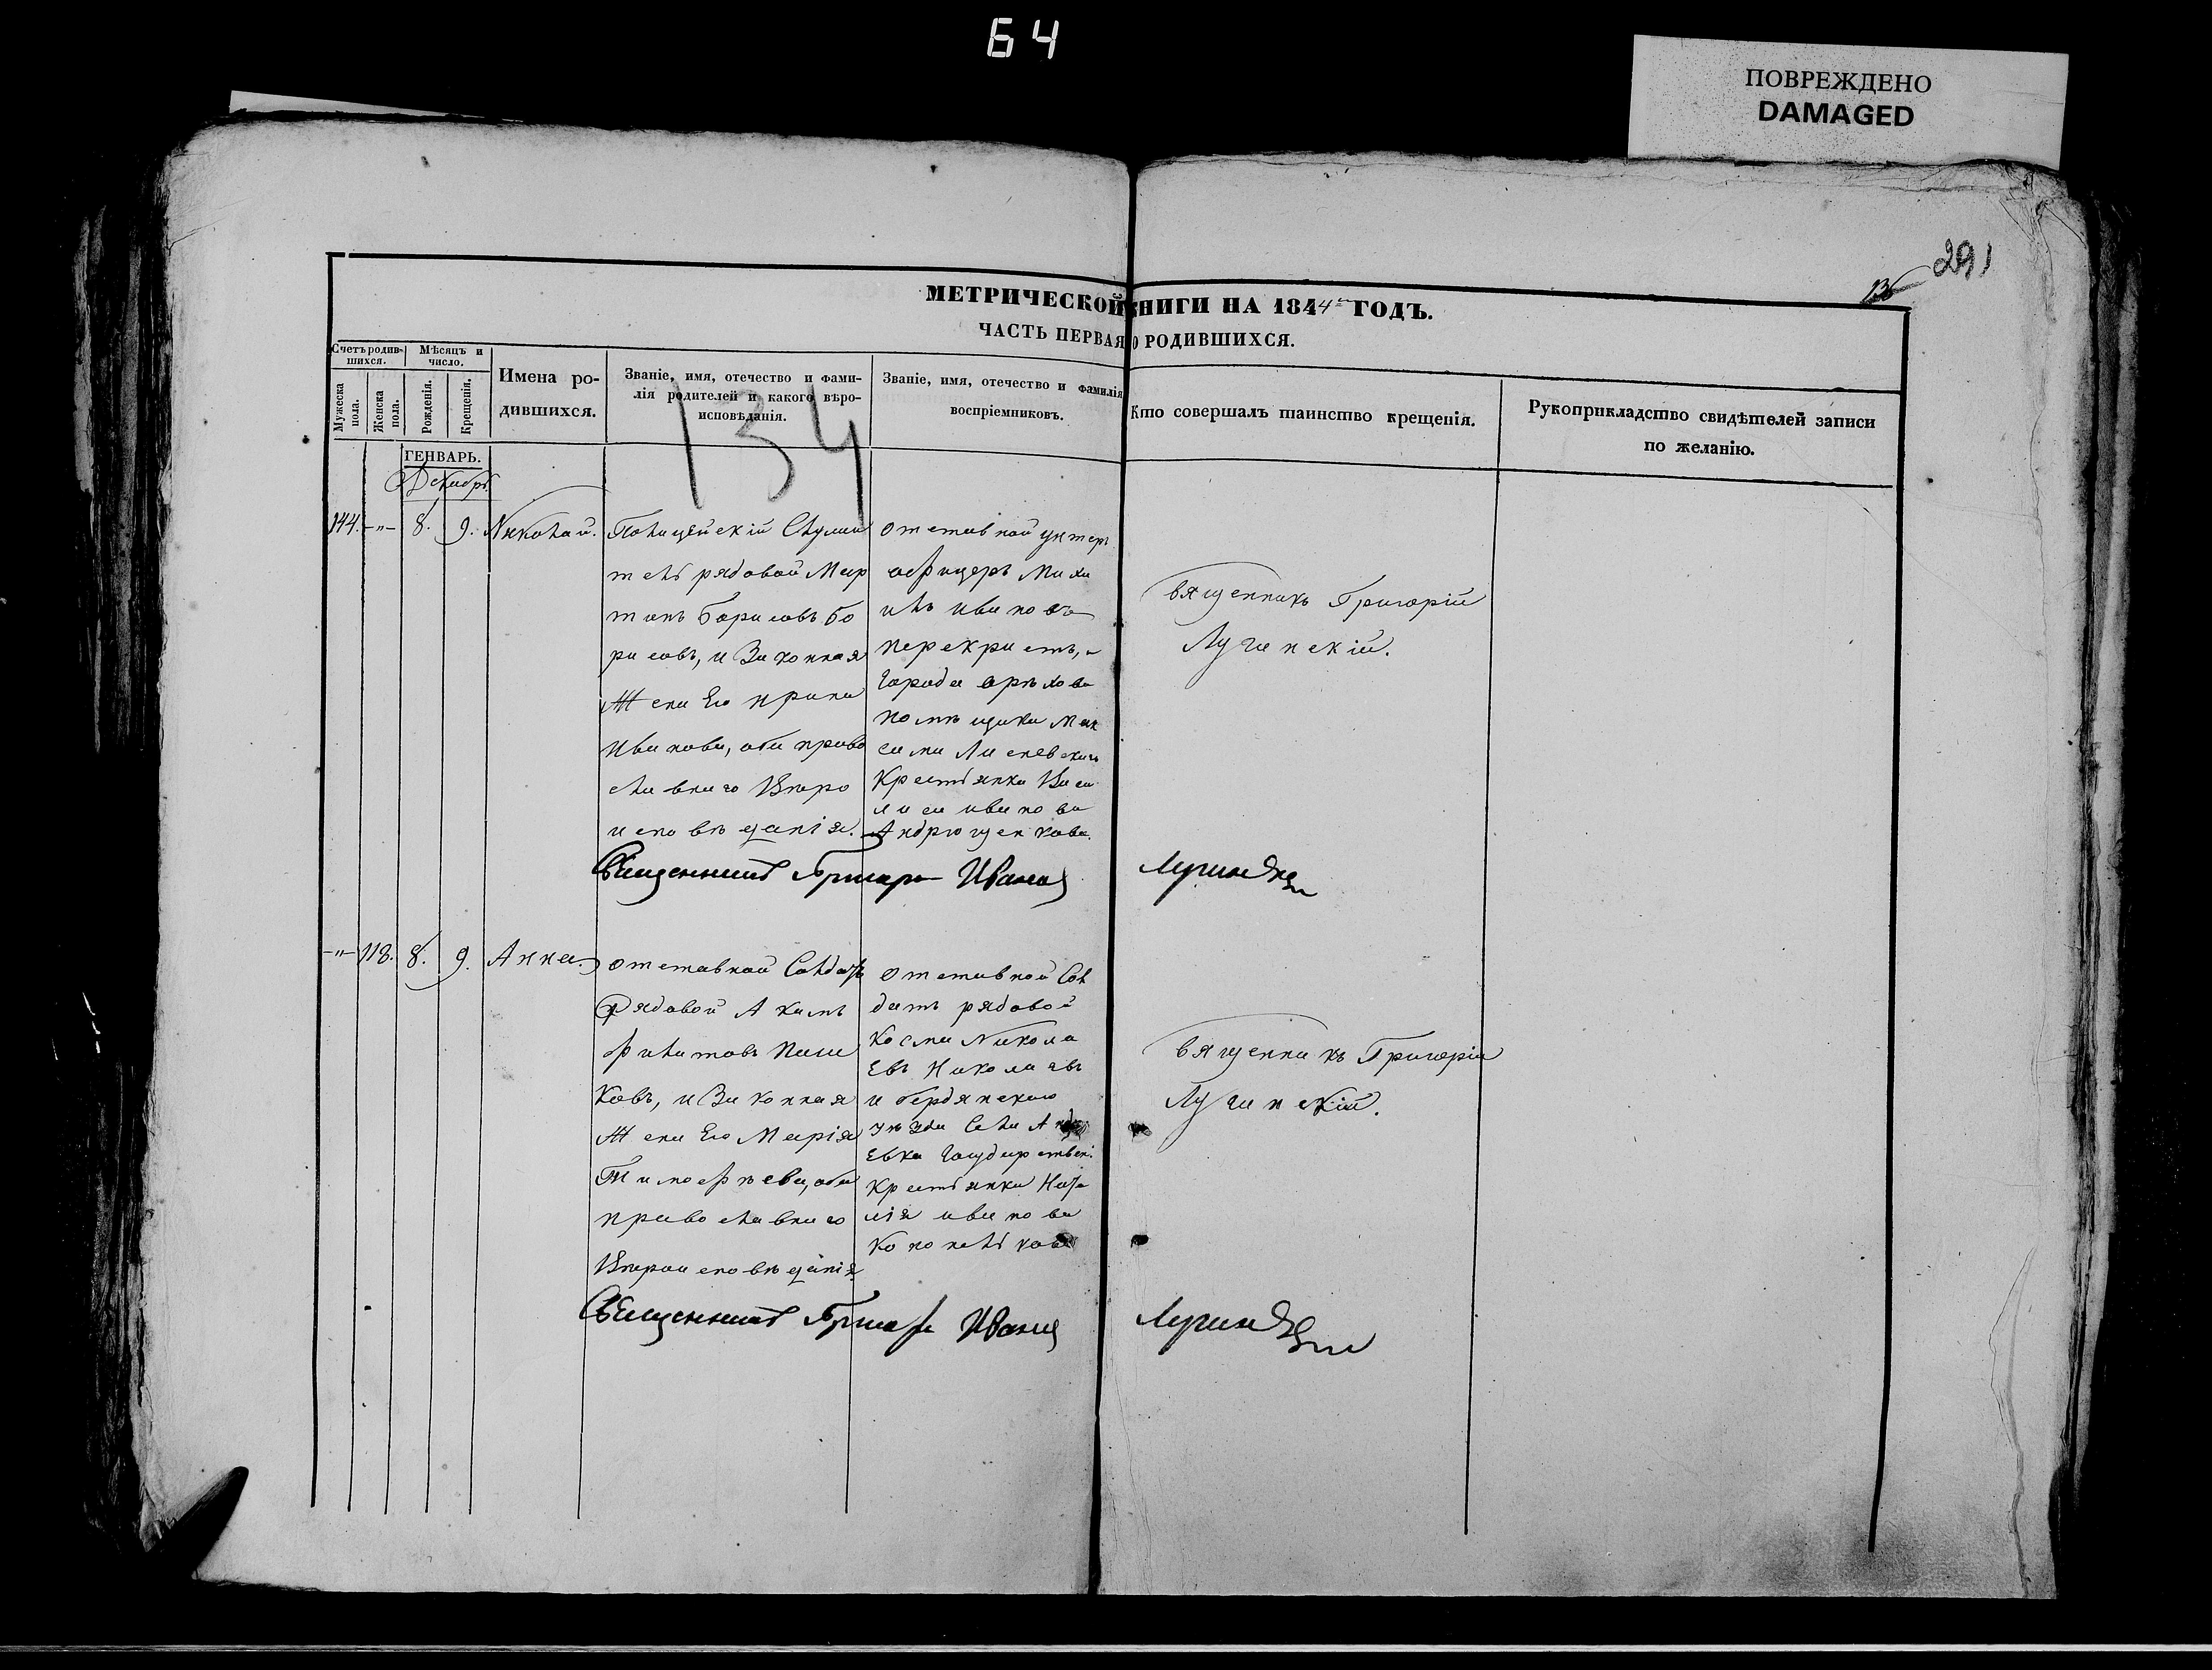 64
ПОВРЕЖДЕНО
DAMAGED
291
МЕТРИЧЕСКОЙ КНИГИ НА 1844 ГОДЪ.
ЧАСТЬ ПЕРВАЯ О РОДИВШИХСЯ.
Счетъ родившихся.
Мужеска пола.
Женска пола.
Мѣсяцъ и число.
Рожденія.
Крещенія.
Имена родившихся.
Званіе, имя, отечество и фами-
лія родителей и какого вѣро-
исповѣданія.
134
Званіе, имя, отечество и фамилія
воспріемниковъ.
Кто совершалъ таинство крещенія.
Рукоприкладство свидѣтелей записи
по желанію.
ГЕНВАРЬ.
Декабрь.
144. -"- 8. 9. Николай.
Полицейскій Служи
тель рядовой Мар
тинъ Борисовъ Бо
рисовъ, и Законная
Жена Его Ирина
Иванова, оба право
славнаго Вѣро
исповѣданія.
Отставной унтеръ
офицеръ Миха
илъ Ивановъ
Перекристъ, и
Города Орѣхова
помѣщика Мак
сима Лисневскаго
Крестьянка Васи
лиса Иванова
Андрющенкова.
Священникъ Григорій
Лугинскій.
Священникъ Григорій Иванов Лугинскій
-"- 118. 8. 9. Анна.
Отставной Солдатъ
Рядовой Акимъ
Филатовъ
ковъ, и Законная
Жена Его Марія
Тимофѣева, оба
православнаго
Вѣроисповѣданія.
Отставной Сол
датъ рядовой
Косма Никола
евъ Николаевъ
и Бердянскаго
уѣзда Села
евка Государствен.
Крестьянка Ната
лія Иванова
Кононенкова
Священникъ Григорій
Лугинскій.
Священникъ Григорій Иванов Лугинскій